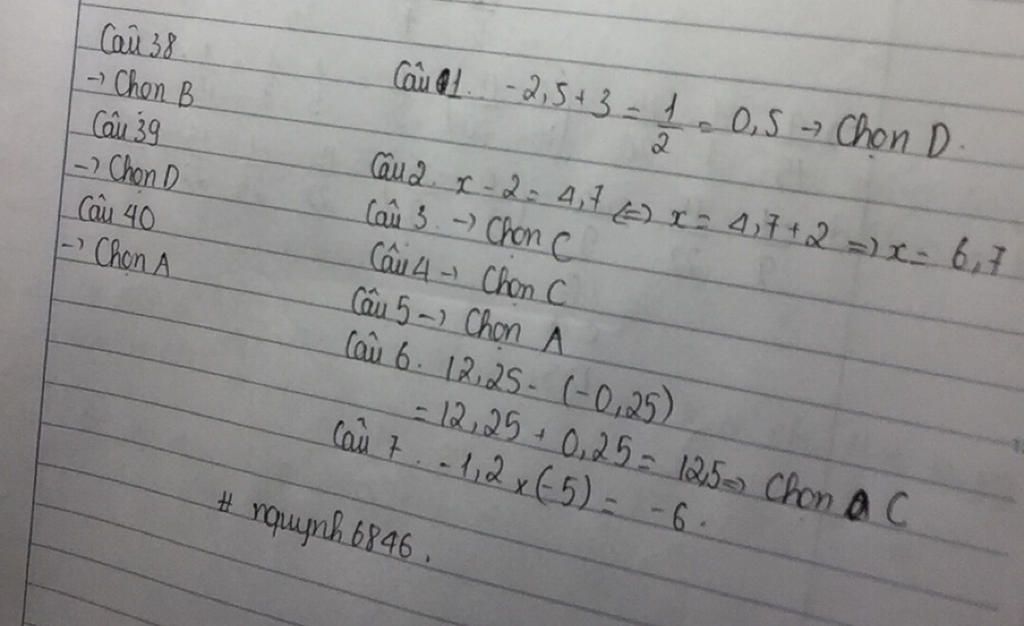 Câu 38
→ Chọn B
Câu 39
→ Chọn D
Câu 40
→ Chọn A
Câu 1. -2,5 + 3 = 1/2 = 0,5 → Chọn D.
Câu 2. x - 2 = 4,7 ⇔ x = 4,7 + 2 ⇒ x = 6,7
Câu 3. → Chọn C
Câu 4 → Chọn C
Câu 5 → Chọn A
Câu 6. 12,25 - (-0,25)
= 12,25 + 0,25 = 12,5 ⇒ Chọn C
Câu 7. -1,2 x (-5) = -6.
# nquynh6846.